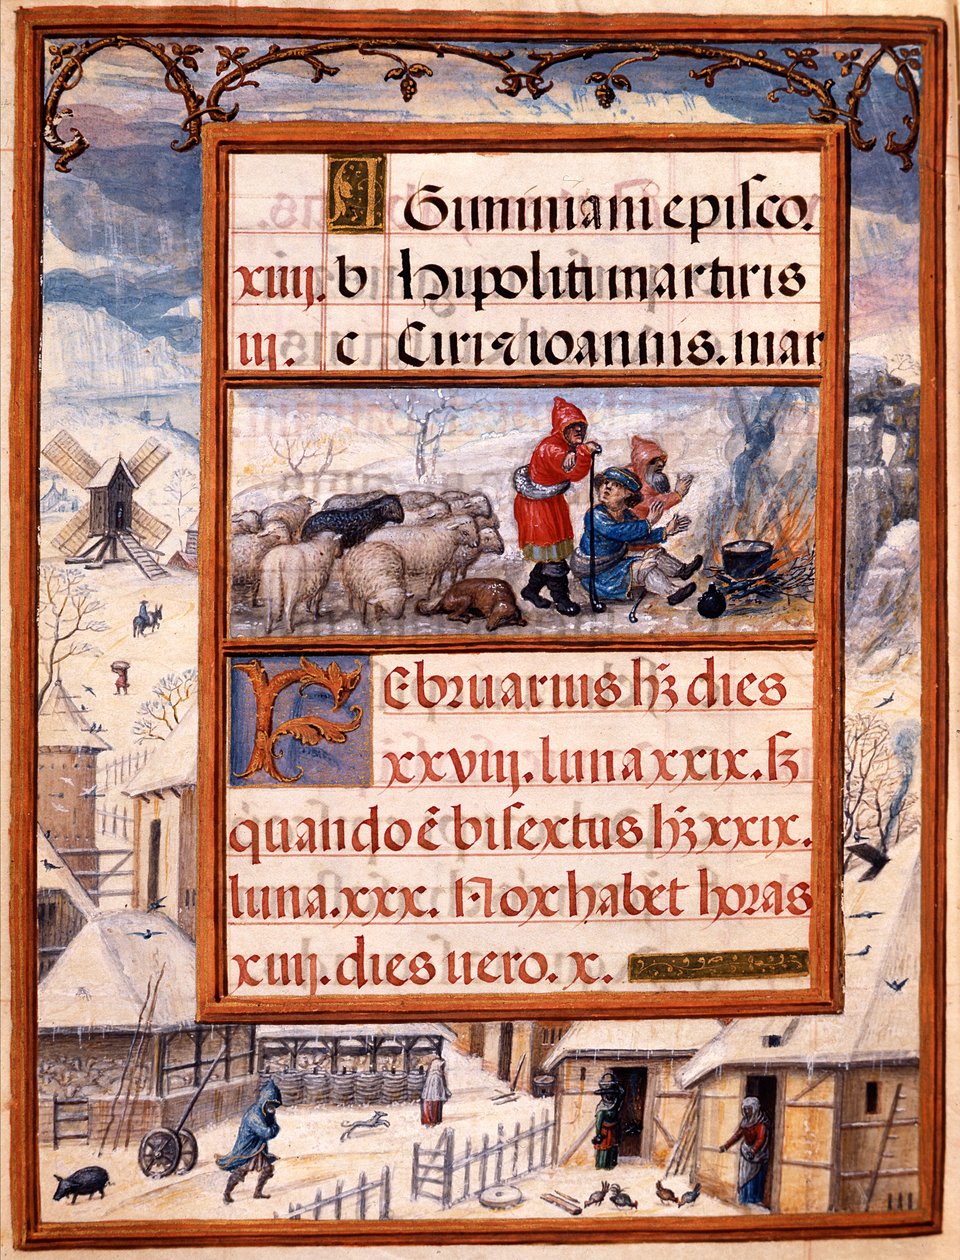 A Giminiani episco.
xiiij. b hipoliti martiris
iij. c Ciri ⁊ ioannis. mar
FEbruarius hꝫ dies
xxviij. luna xxix. sꝫ
quando ē bisextus hꝫ xxix.
luna.xxx. Nox habet horas
xiiij. dies uero. x.